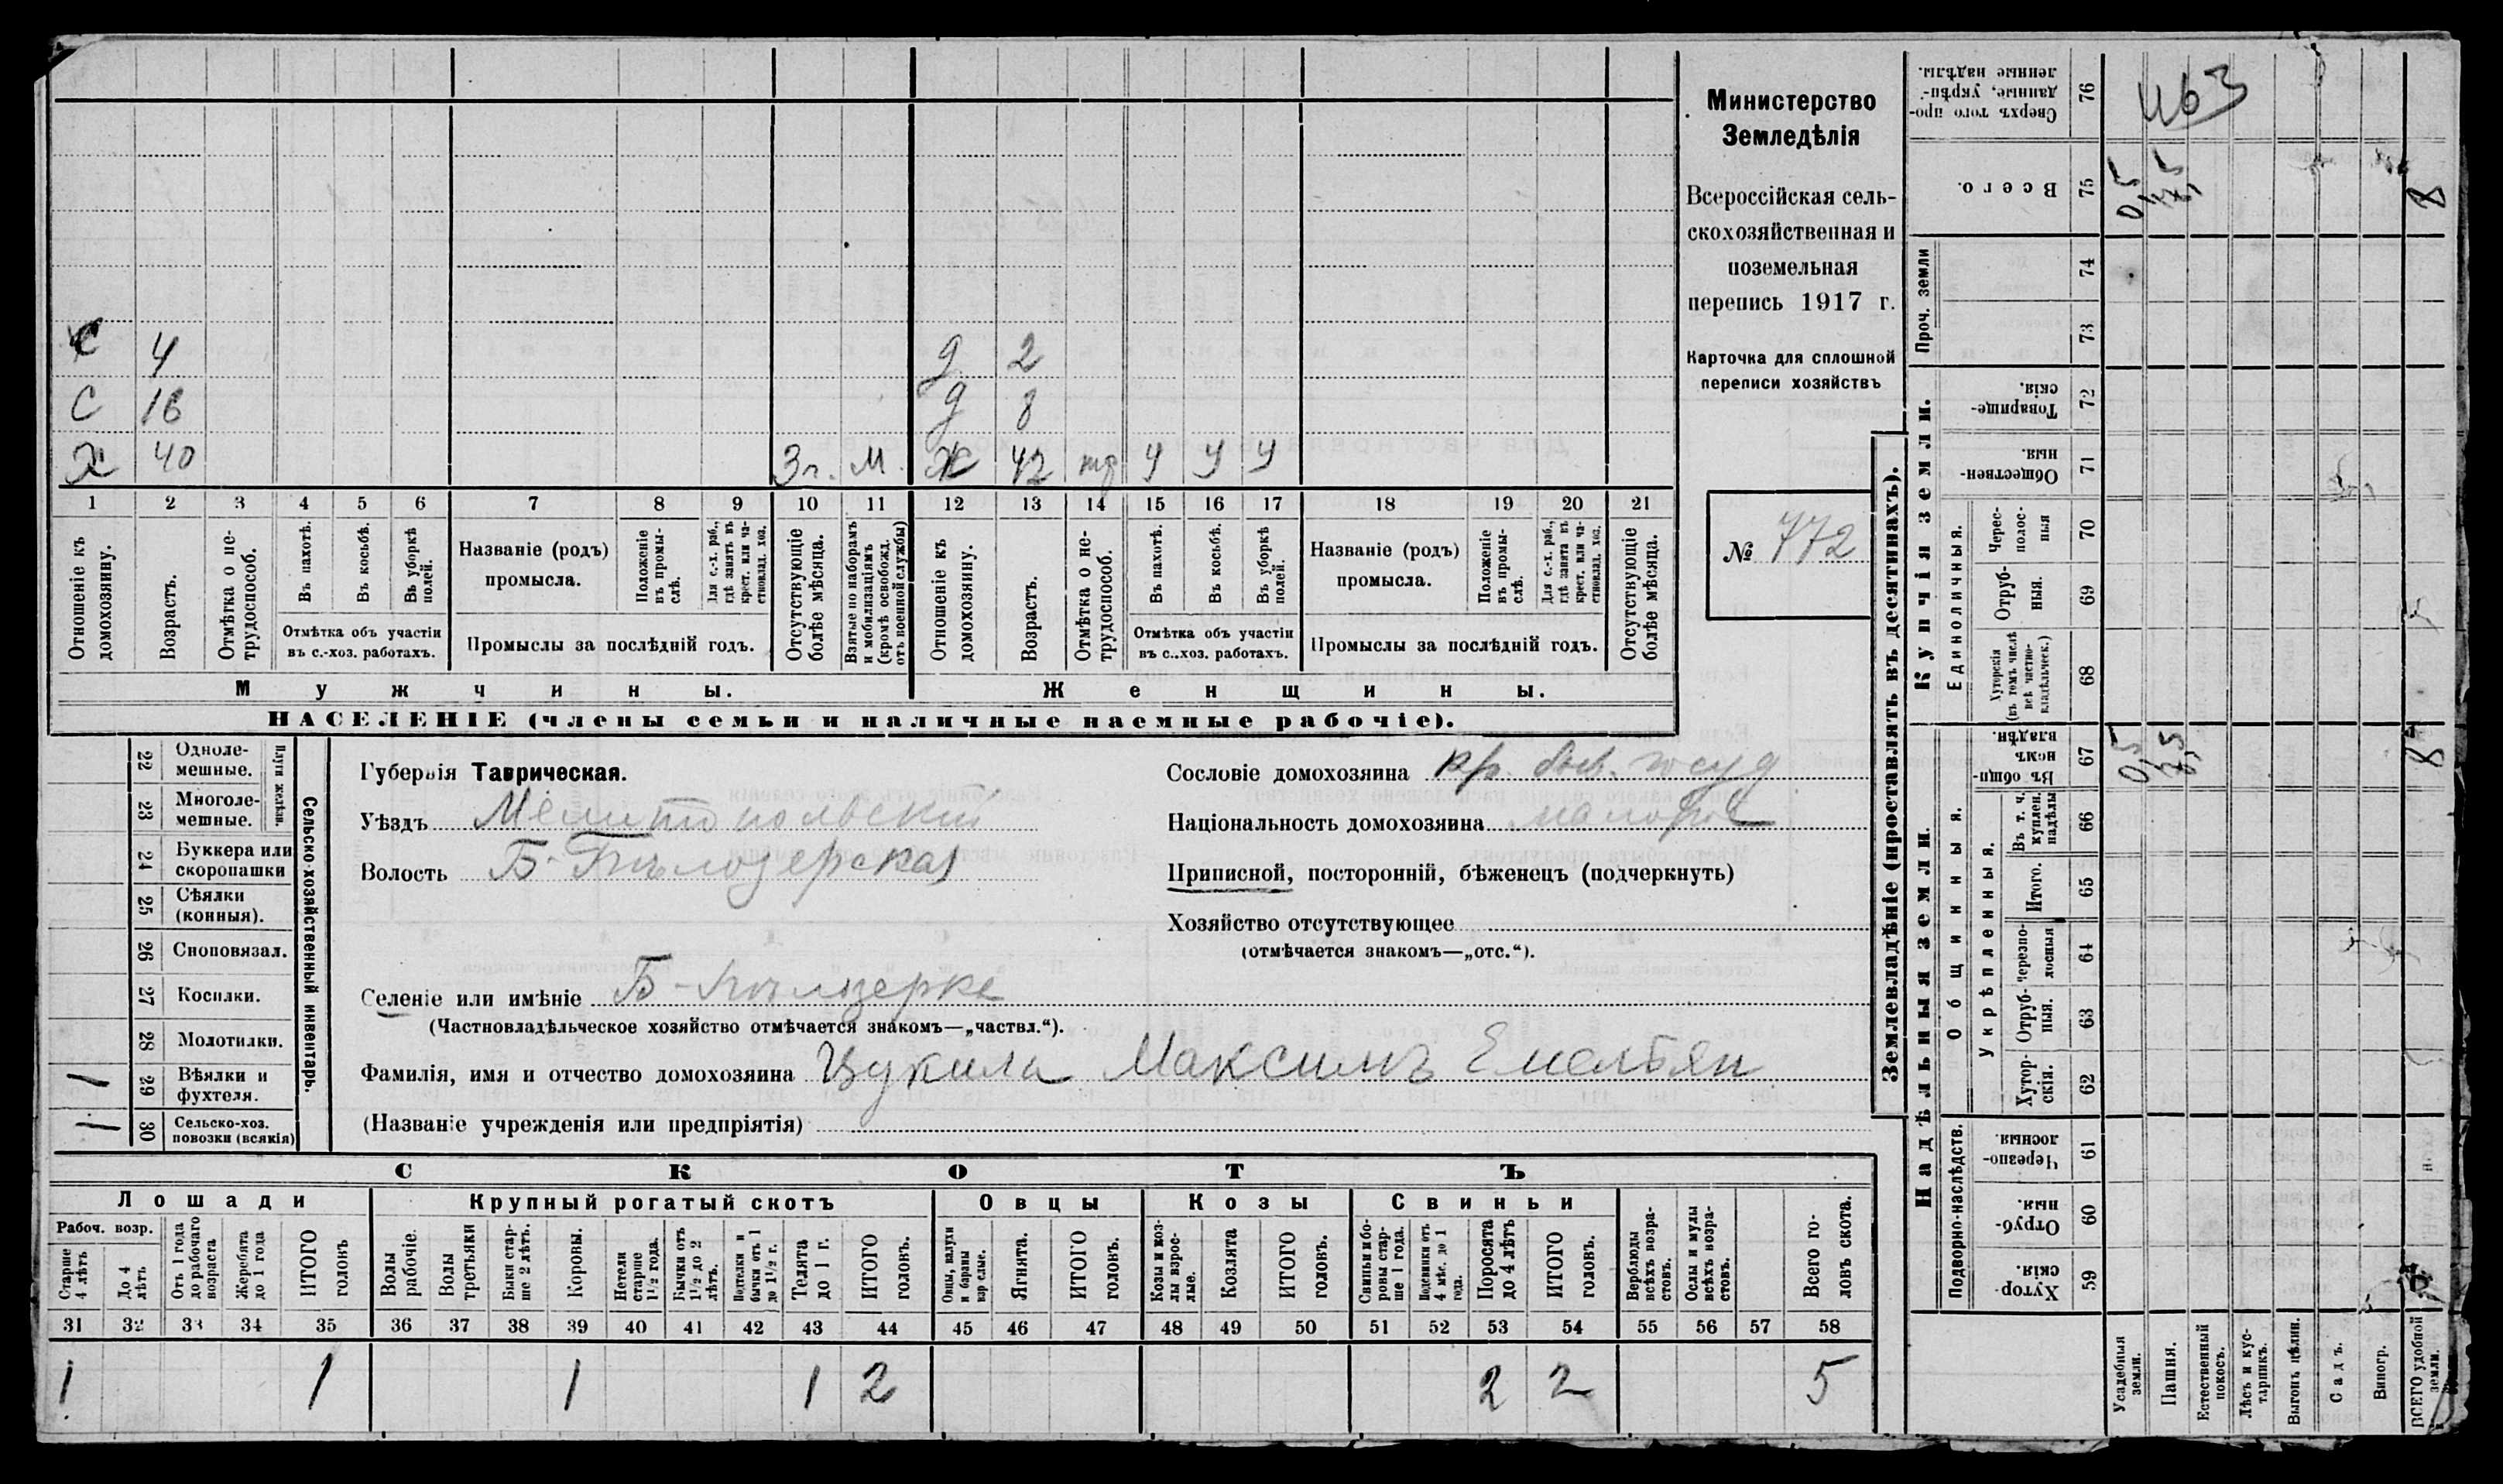 Министерство
Земледѣлія
Всероссійская сель-
скохозяйственная и
поземельная
перепись 1917 г.
Карточка для сплошной
переписи хозяйствъ
№ 772
С 4 д 2
С 16 д 8
Х 40 3 г. М. Ж 42 У У У
1 2 3 4 5 6 7 8 9 10 11 12 13 14 15 16 17 18 19 20 21
Отношеніе къ домохозяину.
Возрастъ.
Отмѣтка о не-трудоспособ.
Въ пахотѣ.
Въ косьбѣ.
Въ уборкѣ полей.
Отмѣтка объ участіи
въ с.-хоз. работахъ.
Названіе (родъ)
промысла.
Положеніе въ промы-слѣ.
Для с.-х. раб., гдѣ занятъ въ крест. или ча-стновлад. хоз.
Промыслы за послѣдній годъ.
Отсутствующіе болѣе мѣсяца.
Взятые по наборамъ и мобилизаціямъ (кромѣ освобожд. отъ военной службы)
Отношеніе къ домохозяину.
Возрастъ.
Отмѣтка о не-трудоспособ.
Въ пахотѣ.
Въ косьбѣ.
Въ уборкѣ полей.
Отмѣтка объ участіи
въ с.-хоз. работахъ.
Названіе (родъ)
промысла.
Положеніе въ промы-слѣ.
Для с.-х. раб., гдѣ занята въ крест. или ча-стновлад. хоз.
Промыслы за послѣдній годъ.
Отсутствующіе болѣе мѣсяца.
Мужчины.
Женщины.
НАСЕЛЕНІЕ (члены семьи и наличные наемные рабочіе).
Сельско-хозяйственный инвентарь.
Плуги желѣзн.
22 Одноле-мешные.
23 Многоле-мешные.
24 Буккера или скоропашки
25 Сѣялки (конныя).
26 Сноповязал.
27 Косилки.
28 Молотилки.
1 29 Вѣялки и фухтеля.
1 30 Сельско-хоз. повозки (всякія)
Губернія Таврическая.
Уѣздъ Мелитопольскій
Волость Б-Бѣлозерская
Селеніе или имѣніе Б-Бѣлозерке
(Частновладѣльческое хозяйство отмѣчается знакомъ—„частвл.“).
Сословіе домохозяина кр. быв. госуд
Національность домохозяина малорос
Приписной, посторонній, бѣженецъ (подчеркнуть)
Хозяйство отсутствующее
(отмѣчается знакомъ—„отс.“).
Фамилія, имя и отчество домохозяина Цукила Максимъ Емельян
(Названіе учрежденія или предпріятія)
СКОТЪ
Лошади
Крупный рогатый скотъ
Овцы
Козы
Свиньи
Рабоч. возр.
Старше 4 лѣтъ
До 4 лѣтъ
Отъ 1 года до рабочаго возраста
Жеребята до 1 года
ИТОГО головъ
Волы рабочіе.
Волы третьяки
Быки стар-ше 2 лѣтъ.
Коровы.
Нетели старше 1½ года.
Бычки отъ 1½ до 2 лѣтъ.
Подтелки и бычки отъ 1 до 1½ г.
Телята до 1 г.
ИТОГО головъ.
Овцы, валухи и бараны взрослые.
Ягнята.
ИТОГО головъ.
Козы и коз-лы взрос-лые.
Козлята
ИТОГО головъ.
Свиньи и бо-ровы стар-ше 1 года.
Подсвинки отъ 4 мѣс. до 1 года.
Поросята до 4 лѣтъ
ИТОГО головъ.
Верблюды всѣхъ возра-стовъ.
Ослы и мулы всѣхъ возра-стовъ.
Всего го-ловъ скота.
31 32 33 34 35 36 37 38 39 40 41 42 43 44 45 46 47 48 49 50 51 52 53 54 55 56 57 58
1 1 1 1 2 2 2 5
Землевладѣніе (проставлять въ десятинахъ).
Надѣльныя земли.
Купчія земли.
Проч. земли
Подворно-наслѣдств.
Общинныя.
Укрѣпленныя.
Единоличныя.
Сверхъ того про-данные, укрѣп-ленные надѣлы. 76 463
Всего. 75 0,5 7,5 8
74
73
Товарище-скія. 72
Обществен-ныя. 71
Черес-полос-ныя 70
Отруб-ныя. 69
Хуторскія (въ томъ числѣ всѣ частно-владѣльческ.) 68
Въ общин-номъ владѣн. 67 0,5 7,5 8
Въ т. ч. куплен. надѣлы 66
Итого. 65
Черезпо-лосныя 64
Отруб-ныя. 63
Хутор-скія. 62
Черезпо-лосныя. 61
Отруб-ныя. 60
Хутор-скія. 59
Усадебныя земли.
Пашня.
Естественный покосъ.
Лѣсъ и кус-тарникъ.
Выгонъ цѣлин.
Садъ.
Виногр.
ВСЕГО удобной земли.